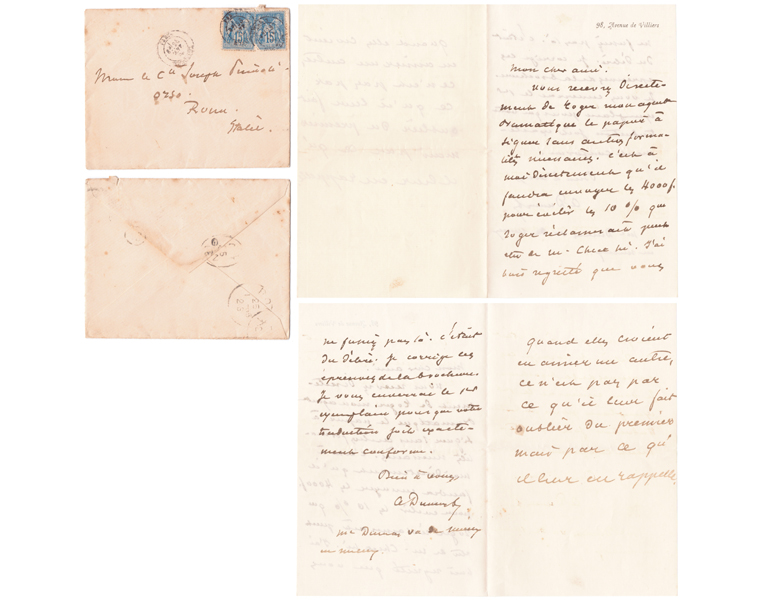 15 15
Monsieur le Cte Joseph Primoli
Rome
Italie
98, Avenue de Villiers
Mon cher ami.
Vous recevrez directe-
ment de Roger mon agent
dramatique le papier à
signer sans autres forma-
lités nécessaires. C'est à
moi directement qu'il
faudra envoyer les 4000 f.
pour éviter les 10 % que
Roger réclamerait peut
être de M. Checchi. J'ai
bien regretté que vous
ne fussiez pas là. C'était
du délire. Je corrige les
épreuves de la brochure.
Je vous enverrai le 1er
exemplaire pour que votre
traduction soit exacte-
ment conforme.
Bien à vous
A Dumas f.
Me Dumas va de mieux
en mieux
quand elles croient
en aimer un autre,
ce n'est pas par
ce qu'il leur fait
oublier du premier
mais par ce qu'
il leur en rappelle.